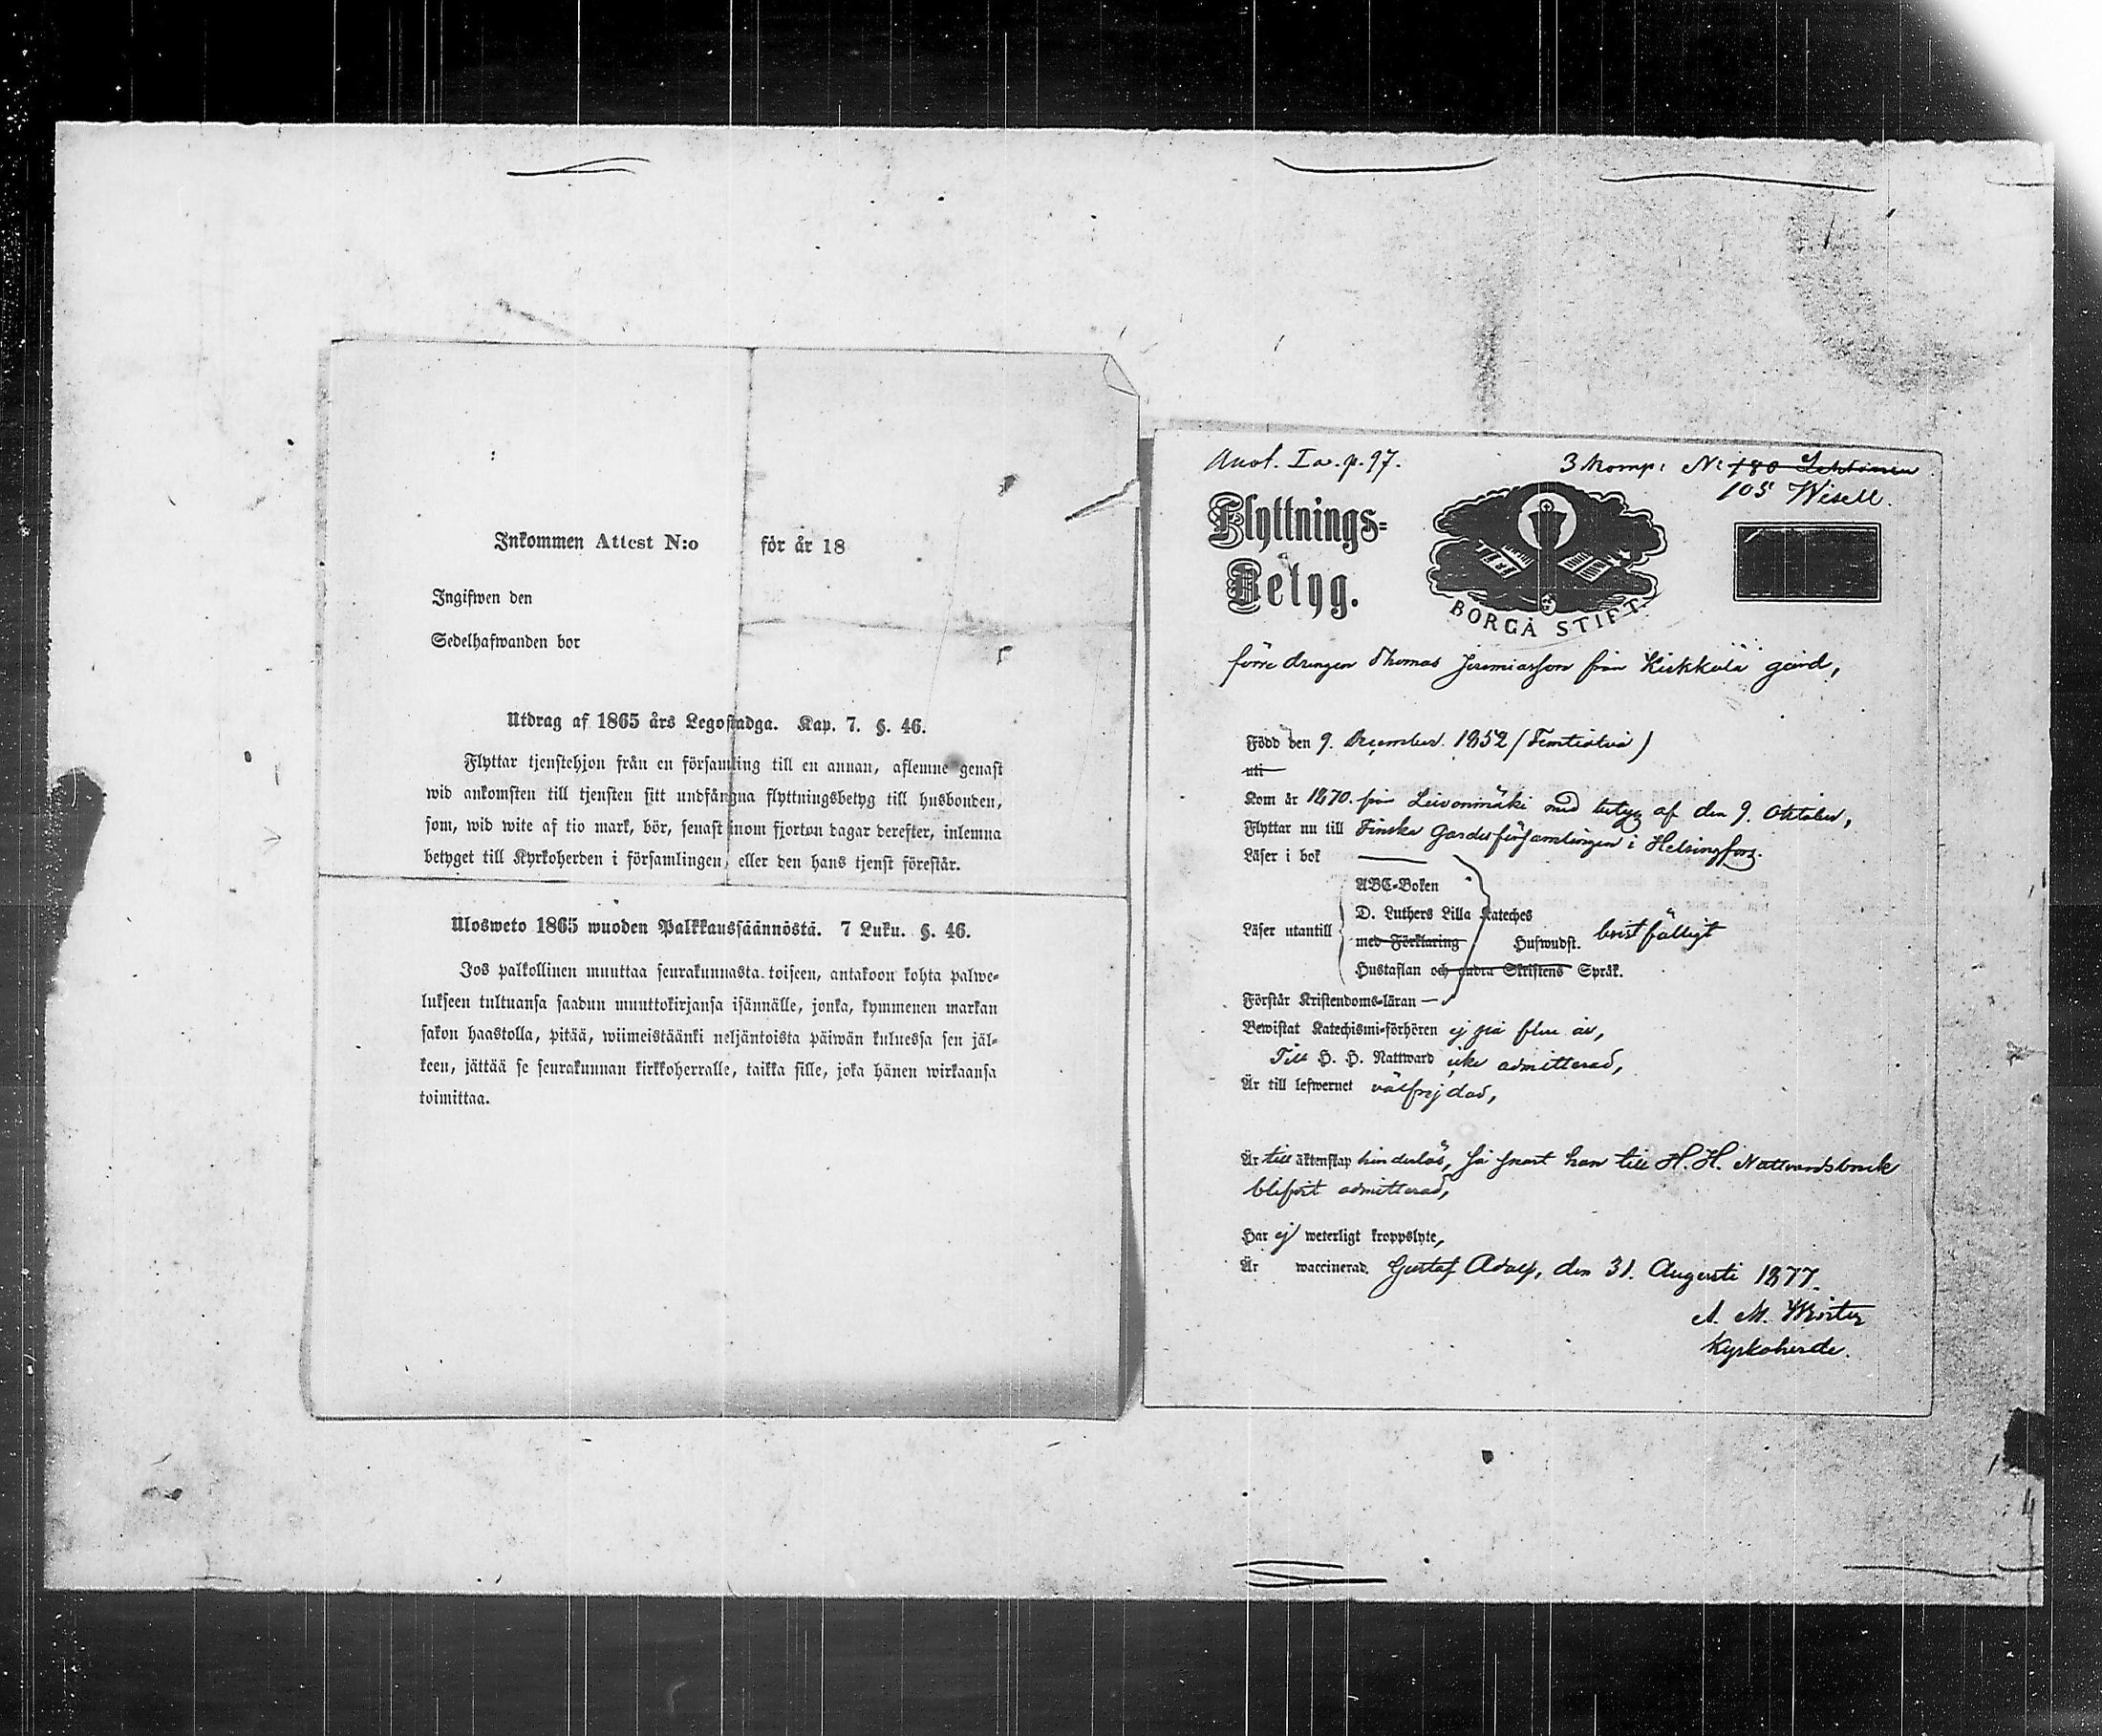 Inkommen Attest N:o för år 18
Ingifwen den
Sedelhafwanden bor
Utdrag af 1865 års Legostadga. Kap. 7. §. 46.
Flyttar tjenstehjon från en församling till en annan, aflemne genast
wid ankomsten till tjensten sitt undfångna flyttningsbetyg till husbonden,
som, wid wite af tio mark, bör, senast inom fjorton dagar derefter, inlemna
betyget till Kyrkoherden i församlingen, eller den hans tjenst förestår.
Ulosweto 1865 wuoden Palkkaussäännöstä. 7 Luku. §. 46.
Jos palkollinen muuttaa seurakunnasta toiseen, antakoon kohta palwe-
lukseen tultuansa saadun muuttokirjansa isännälle, jonka, kymmenen markan
sakon haastolla, pitää, wiimeistäänki neljäntoista päiwän kuluessa sen jäl-
keen, jättää se seurakunnan kirkkoherralle, taikka sille, joka hänen wirkaansa
toimittaa.
Anot. I a. p. 97.
3 Komp: N: 180 Lehtonen
105 Wisell.
Flyttnings-
Betyg.
BORGÅ STIFT.
förre drengen Thomas Jeremiasson från Kirkkola gård,
Född den 9. December 1852 (Femtiotvå)
uti
Kom år 1870. från Leivonmäki med betyg af den 9. Oktober,
Flyttar nu till Finska Gardesförsamlingen i Helsingfors.
Läser i bok
ABC-Boken
D. Luthers Lilla Kateches
Läser utantill
med Förklaring Hufwudst. bristfälligt
Hustaflan och andra Skriftens Språk.
Förstår Kristendoms-läran
Bewistat Katechismi-förhören ej på flere år,
Till H. H. Nattward icke admitterad,
Är till lefwernet välfrejdad,
Är till äktenskap hinderlös, så snart han till H. H. Nattvardsbruk
blifvit admitterad,
Har ej weterligt kroppslyte,
Är waccinerad. Gustaf Adolf, den 31. Augusti 1877.
A. M.
Kyrkoherde.